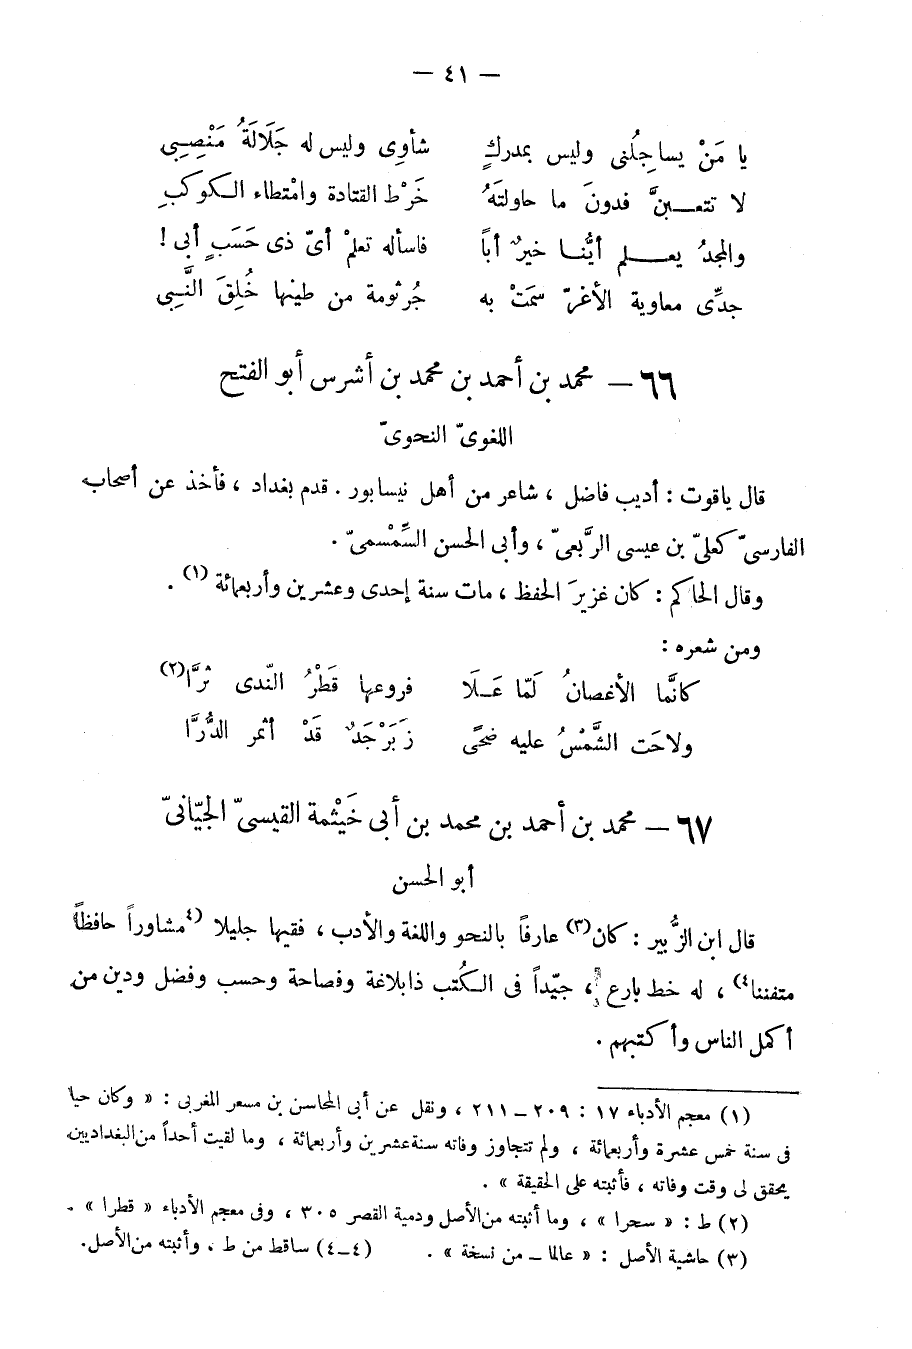 — ٤١ —
يا مَنْ يساجِلُنى وليس بمدركٍ شأوِى وليس له جَلَالَةُ مَنْصِبِى
لا تتعـبنَّ فدونَ ما حاولتَهُ خَرْط القتادة وامْتطاء الكوكبِ
والمجدُ يعـلم أيُّنا خيرٌ أباً فاسأله تعلمْ أىّ ذى حَسَبٍ أبى !
جدِّى معاوية الأغرّ سمَتْ به جُرثومة من طينها خُلِقَ النَّبِى
٦٦ — محمد بن أحمد بن محمد بن أشرس أبو الفتح
اللغوىّ النحوىّ
قال ياقوت : أديب فاضل ، شاعر من أهل نيسابور . قدم بغداد ، فأخذ عن أصحاب
الفارسىّ كعلىّ بن عيسى الرَّبعىّ ، وأبى الحسن السِّمْسمىّ .
وقال الحاكم : كان غزيرَ الحفظ ، مات سنة إحدى وعشرين وأربعمائة (١) .
ومن شعره :
كانَّما الأغصانُ لَمّا عَـلَا فروعها قَطْرُ النّدى ثرَّا(٢)
ولاحَت الشَّمْسُ عليه ضحًى زَبَرْجَدٌ قَدْ أثمر الدُّرَّا
٦٧ — محمد بن أحمد بن محمد بن أبى خَيْثمة القيسىّ الجيّانىّ
أبو الحسن
قال ابن الزُّبير : كان(٣) عارفاً بالنحو واللغة والأدب ، فقيها جليلا (٤مشاوراً حافظاً
متفننا٤) ، له خط بارع ، جيّداً فى الكُتب ذابلاغة وفصاحة وحسب وفضل ودين من
أكمل الناس وأكتبهم .
(١) معجم الأدباء ١٧ : ٢٠٩ – ٢١١ ، ونقل عن أبى المحاسن بن مسعر المغربى : « وكان حيا
فى سنة خمس عشرة وأربعمائة ، ولم تتجاوز وفاته سنة عشرين وأربعمائة ، وما لقيت أحداً من البغداديين
يحقق لى وقت وفاته ، فأثبته على الحقيقة » .
(٢) ط : « سحرا » ، وما أثبته من الأصل ودمية القصر ٣٠٥ ، وفى معجم الأدباء « قطرا » .
(٣) حاشية الأصل : « عالما – من نسخة » . (٤–٤) ساقط من ط ، وأثبته من الأصل.